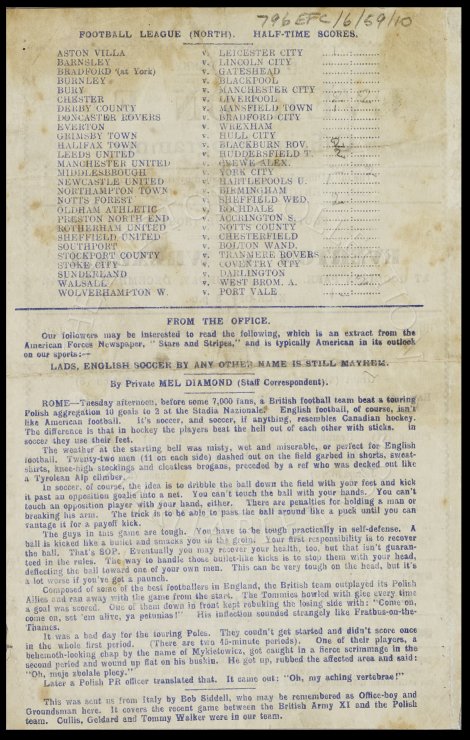 796 EFC/6/59/10
FOOTBALL LEAGUE (NORTH). HALF-TIME SCORES.
ASTON VILLA v. LEICESTER CITY
BARNSLEY v. LINCOLN CITY
BRADFORD (at York) v. GATESHEAD
BURNLEY v. BLACKPOOL
BURY v. MANCHESTER CITY
CHESTER v. LIVERPOOL
DERBY COUNTY v. MANSFIELD TOWN
DONCASTER ROVERS v. BRADFORD CITY
EVERTON v. WREXHAM
GRIMSBY TOWN v. HULL CITY
HALIFAX TOWN v. BLACKBURN ROV.
LEEDS UNITED v. HUDDERSFIELD T.
MANCHESTER UNITED v. CREWE ALEX.
MIDDLESBROUGH v. YORK CITY
NEWCASTLE UNITED v. HARTLEPOOLS U.
NORTHAMPTON TOWN v. BIRMINGHAM
NOTTS FOREST v. SHEFFIELD WED.
OLDHAM ATHLETIC v. ROCHDALE
PRESTON NORTH END v. ACCRINGTON S.
ROTHERHAM UNITED v. NOTTS COUNTY
SHEFFIELD UNITED v. CHESTERFIELD
SOUTHPORT v. BOLTON WAND.
STOCKPORT COUNTY v. TRANMERE ROVERS
STOKE CITY v. COVENTRY CITY
SUNDERLAND v. DARLINGTON
WALSALL v. WEST BROM. A.
WOLVERHAMPTON W. v. PORT VALE
FROM THE OFFICE.
Our followers may be interested to read the following, which is an extract from the
American Forces Newspaper, "Stars and Stripes," and is typically American in its outlook
on our sports:—
LADS, ENGLISH SOCCER BY ANY OTHER NAME IS STILL MAYHEM.
By Private MEL DIAMOND (Staff Correspondent).
ROME—Tuesday afternoon, before some 7,000 fans, a British football team beat a touring
Polish aggregation 10 goals to 2 at the Stadia Nazionale. English football, of course, isn't
like American football. It's soccer, and soccer, if anything, resembles Canadian hockey.
The difference is that in hockey the players beat the hell out of each other with sticks. In
soccer they use their feet.
The weather at the starting bell was misty, wet and miserable, or perfect for English
football. Twenty-two men (11 on each side) dashed out on the field garbed in shorts, sweat-
shirts, knee-high stockings and cleatless brogans, preceded by a ref who was decked out like
a Tyrolean Alp climber.
In soccer, of course, the idea is to dribble the ball down the field with your feet and kick
it past an opposition goalie into a net. You can't touch the ball with your hands. You can't
touch an opposition player with your hand, either. There are penalties for holding a man or
breaking his arm. The trick is to be able to pass the ball around like a puck until you can
vantage it for a payoff kick.
The guys in this game are tough. You have to be tough practically in self-defense. A
ball is kicked like a bullet and smacks you in the groin. Your first responsibility is to recover
the ball. That's SOP. Eventually you may recover your health, too, but that isn't guaran-
teed in the rules. The way to handle those bullet-like kicks is to stop them with your head,
deflecting the ball toward one of your own men. This can be very tough on the head, but it's
a lot worse if you've got a paunch.
Composed of some of the best footballers in England, the British team outplayed its Polish
Allies and ran away with the game from the start. The Tommies howled with glee every time
a goal was scored. One of them down in front kept rebuking the losing side with: "Come on,
come on, set 'em alive, ya petunias!" His inflection sounded strangely like Fratbus-on-the-
Thames.
It was a bad day for the touring Poles. They coudn't get started and didn't score once
in the whole first period. (There are two 45-minute periods). One of their players, a
behemoth-looking chap by the name of Mykietowicz, got caught in a fierce scrimmage in the
second period and wound up flat on his buskin. He got up, rubbed the affected area and said:
"Oh, moje zbolale plecy."
Later a Polish PR officer translated that. It came out: "Oh, my aching vertebrae!"
This was sent us from Italy by Bob Siddell, who may be remembered as Office-boy and
Groundsman here. It covers the recent game between the British Army XI and the Polish
team. Cullis, Geldard and Tommy Walker were in our team.